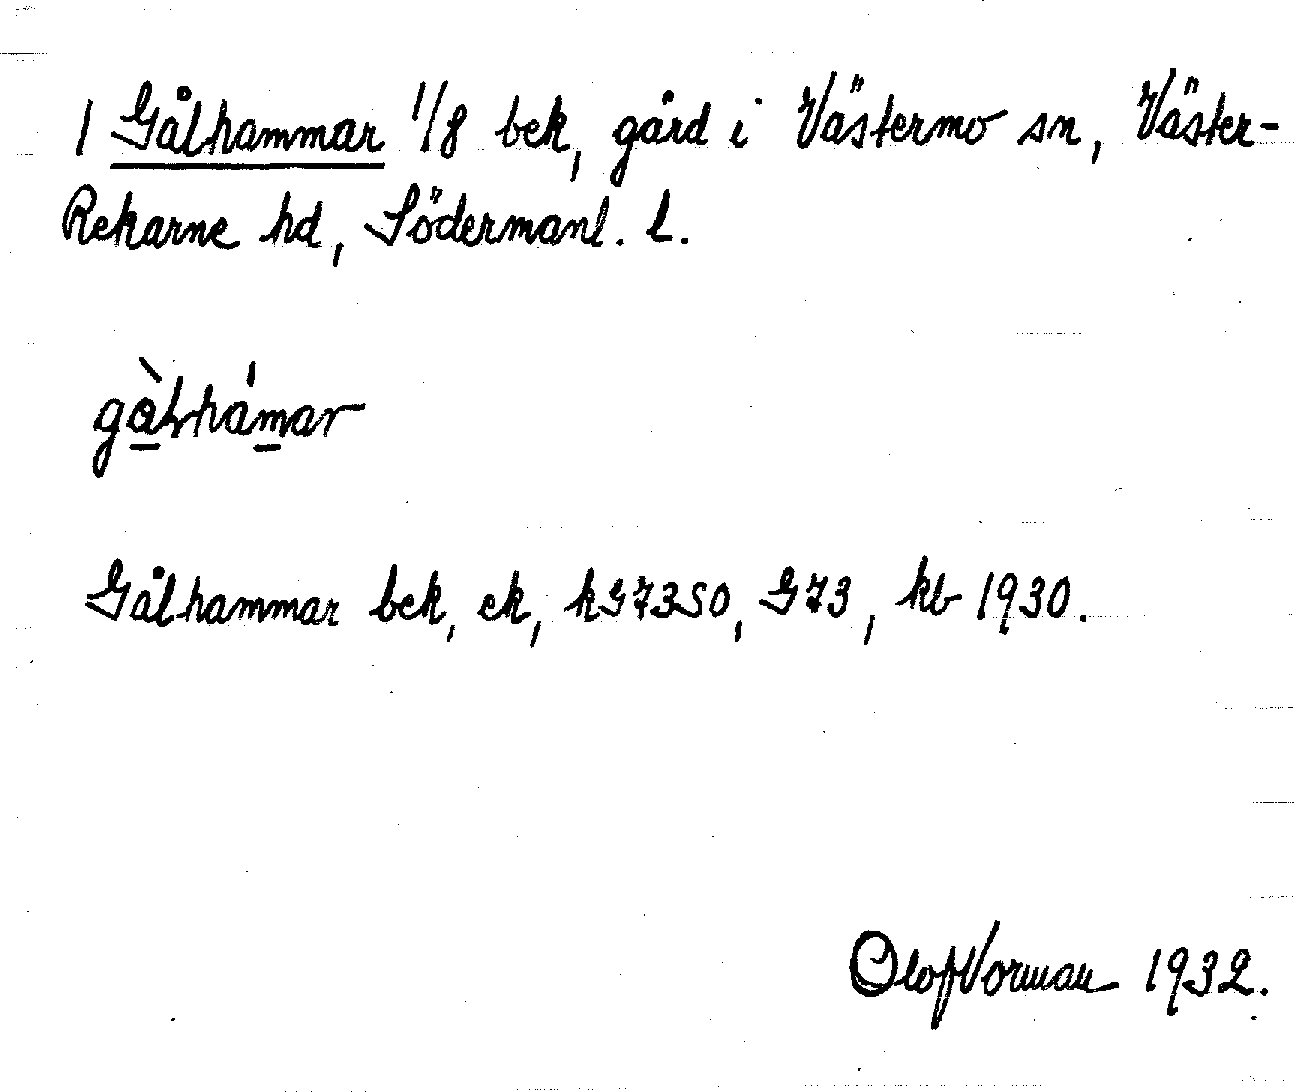 1 Gålhammar 1/8 bek, gård i Västermo sn, Väster-
Rekarne hd, Södermanl. l.
gàlhámar
Gålhammar bek, ek, kG73SO, G73, kb 1930.
Olof Vorman 1932.